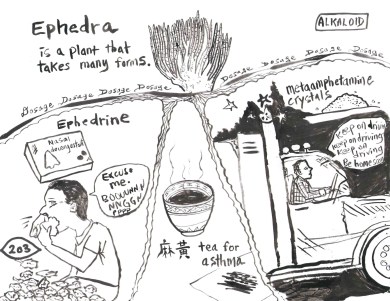 Ephedra
is a plant that
takes many forms.
ALKALOID
Dosage Dosage Dosage Dosage
Dosage Dosage Dosage Dosage
Ephedrine
Nasal
decongestant
Excuse
me.
203
麻黃 tea for
asthma
metaamphetamine
crystals
keep on driving
keep on driving
keep on
driving
Be home soon